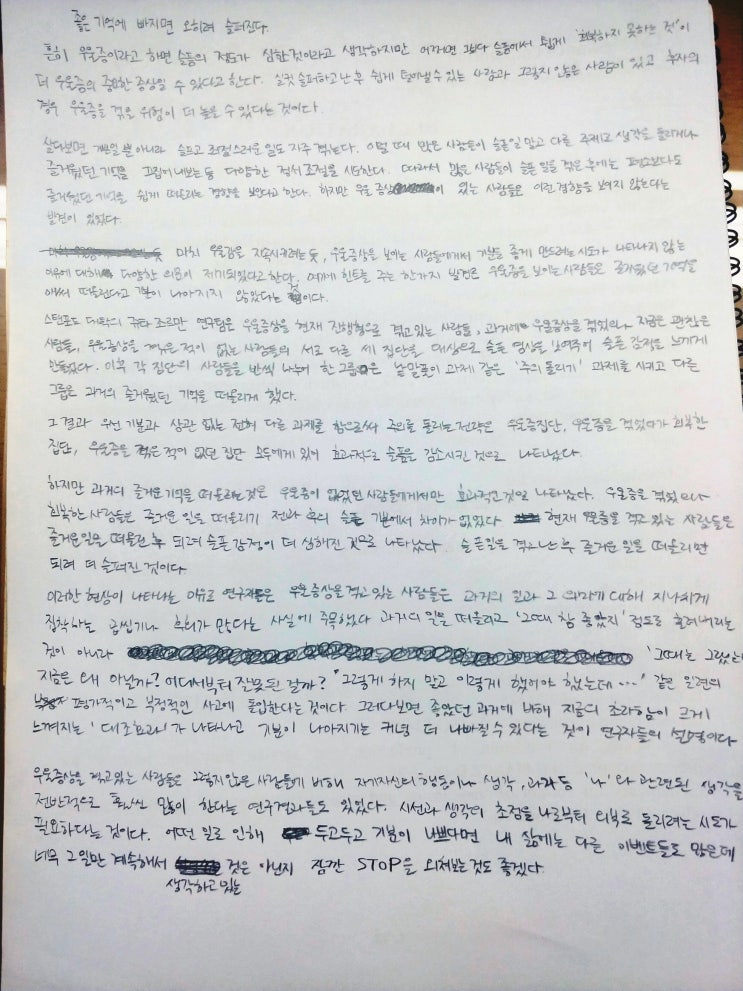 좋은 기억에 빠지면 오히려 슬퍼진다.
흔히 우울증이라고 하면 슬픔의 정도가 심한 것이라고 생각하지만 어쩌면 그보다 슬픔에서 쉽게 '회복하지 못하는 것'이
더 우울증의 중요한 증상일 수 있다고 한다. 실컷 슬퍼하고 난 후 쉽게 털어낼 수 있는 사람과 그렇지 않은 사람이 있고 후자의
경우 우울증을 겪을 위험이 더 높을 수 있다는 것이다.
살다보면 기쁜일 뿐 아니라 슬프고 걱정스러운 일도 자주 겪는다. 이럴 때 많은 사람들이 슬픈일 말고 다른 주제로 생각을 돌리거나
즐거웠던 기억을 끄집어내보는 등 다양한 정서조절을 시도한다. 따라서 많은 사람들이 슬픈 일을 겪은 후에는 평소보다도
즐거웠던 기억을 쉽게 떠올리는 경향을 보인다고 한다. 하지만 우울증상이 있는 사람들은 이런 경향을 보이지 않는다는
발견이 있었다.
마치 우울감을 지속시키려는 듯, 우울증상을 보이는 사람들에게서 기분을 좋게 만드려는 시도가 나타나지 않는
이유에 대해 다양한 의문이 제기되었다고 한다. 여기에 힌트를 주는 한가지 발견은 우울증을 보이는 사람들은 즐거웠던 기억을
애써 떠올린다고 기분이 나아지지 않았다는 것이다.
스탠포드 대학의 유타 조르만 연구팀은 우울증상을 현재 진행형으로 겪고 있는 사람들, 과거에 우울증상을 겪었으나 지금은 괜찮은
사람들, 우울증상을 겪은 적이 없는 사람들의 서로 다른 세 집단을 대상으로 슬픈 영상을 보여주어 슬픈 감정을 느끼게
만들었다. 이후 각 집단의 사람들을 반씩 나누어 한 그룹은 낱말풀이 과제 같은 '주의 돌리기' 과제를 시키고 다른
그룹은 과거의 즐거웠던 기억을 떠올리게 했다.
그 결과 우선 기분과 상관 없는 전혀 다른 과제를 함으로써 주의를 돌리는 전략은 우울증집단, 우울증을 겪었다가 회복한
집단, 우울증을 겪은 적이 없던 집단 모두에게 있어 효과적으로 슬픔을 감소시킨 것으로 나타났다.
하지만 과거의 즐거운 기억을 떠올리는 것은 우울증이 없었던 사람들에게서만 효과적인 것으로 나타났다. 우울증을 겪었으나
회복한 사람들은 즐거운 일을 떠올리기 전과 후의 슬픈 기분에서 차이가 없었다 현재 우울증을 겪고 있는 사람들은
즐거운일을 떠올린 후 되려 슬픈 감정이 더 심해진 것으로 나타났다. 슬픈일을 겪고 난 후 즐거운 일을 떠올리면
되려 더 슬퍼진 것이다
이러한 현상이 나타나는 이유로 연구자들은 우울증상을 겪고 있는 사람들은 과거의 일과 그 의미에 대해 지나치게
집착하는 곱씹기나 후회가 많다는 사실에 주목했다 과거의 일을 떠올리고 '그때 참 좋았지' 정도로 흘려버리는
것이 아니라 '그때는 그랬는데
지금은 왜 아닐까? 어디서부터 잘못된 걸까?' '그렇게 하지 말고 이렇게 했어야 했는데...' 같은 일련의
평가적이고 부정적인 사고에 돌입한다는 것이다. 그러다보면 좋았던 과거에 비해 지금의 초라함이 크게
느껴지는 '대조효과'가 나타나고 기분이 나아지기는 커녕 더 나빠질 수 있다는 것이 연구자들의 설명이다
우울증상을 겪고 있는 사람들은 그렇지 않은 사람들에 비해 자기자신의 행동이나 생각, 과거 등 '나'와 관련된 생각을
전반적으로 훨씬 많이 한다는 연구결과들도 있었다. 시선과 생각의 초점을 나로부터 외부로 돌리려는 시도가
필요하다는 것이다. 어떤 일로 인해 두고두고 기분이 나쁘다면 내 삶에는 다른 이벤트들도 많은데
너무 그 일만 계속해서 생각하고 있는 것은 아닌지 잠깐 STOP을 외쳐보는 것도 좋겠다.